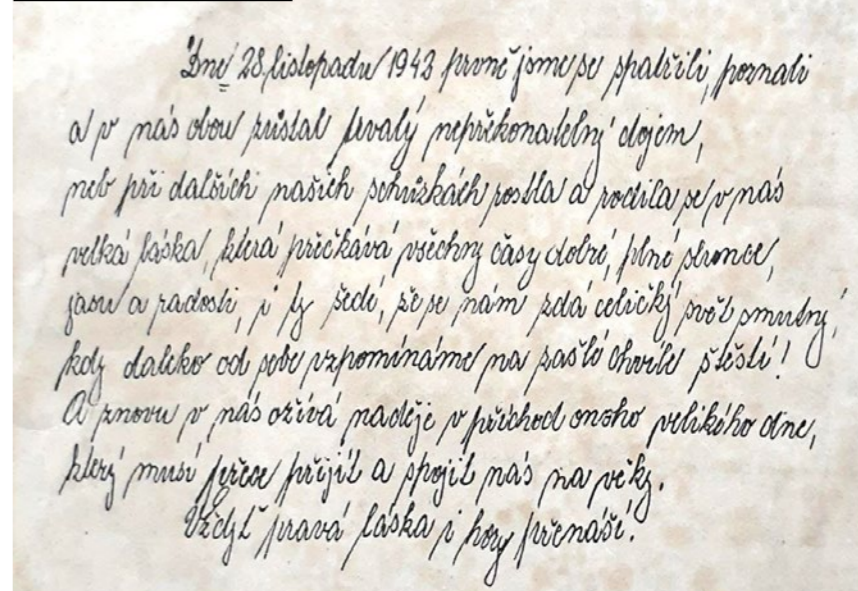 Dne 28. listopadu 1943 prvně jsme se spatřili, poznali
a v nás obou zůstal trvalý nepřekonatelný dojem,
neb při dalších našich schůzkách rostla a rodila se v nás
velká láska, která přečkává všechny časy dobré, plné slunce,
jasu a radosti, i ty šedé, že se nám zdá celičký svět smutný,
kdy daleko od sebe vzpomínáme na zašlé chvíle štěstí!
A znovu v nás ožívá naděje v příchod onoho velikého dne,
který musí přece přijít a spojit nás na věky.
Vždyť pravá láska i hory přenáší.